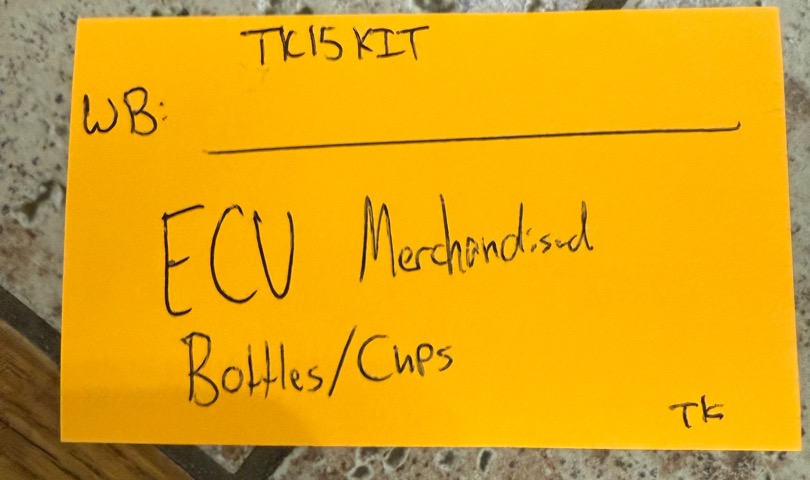 TK15KIT
WB:
ECU Merchandised
Bottles/Cups
TK